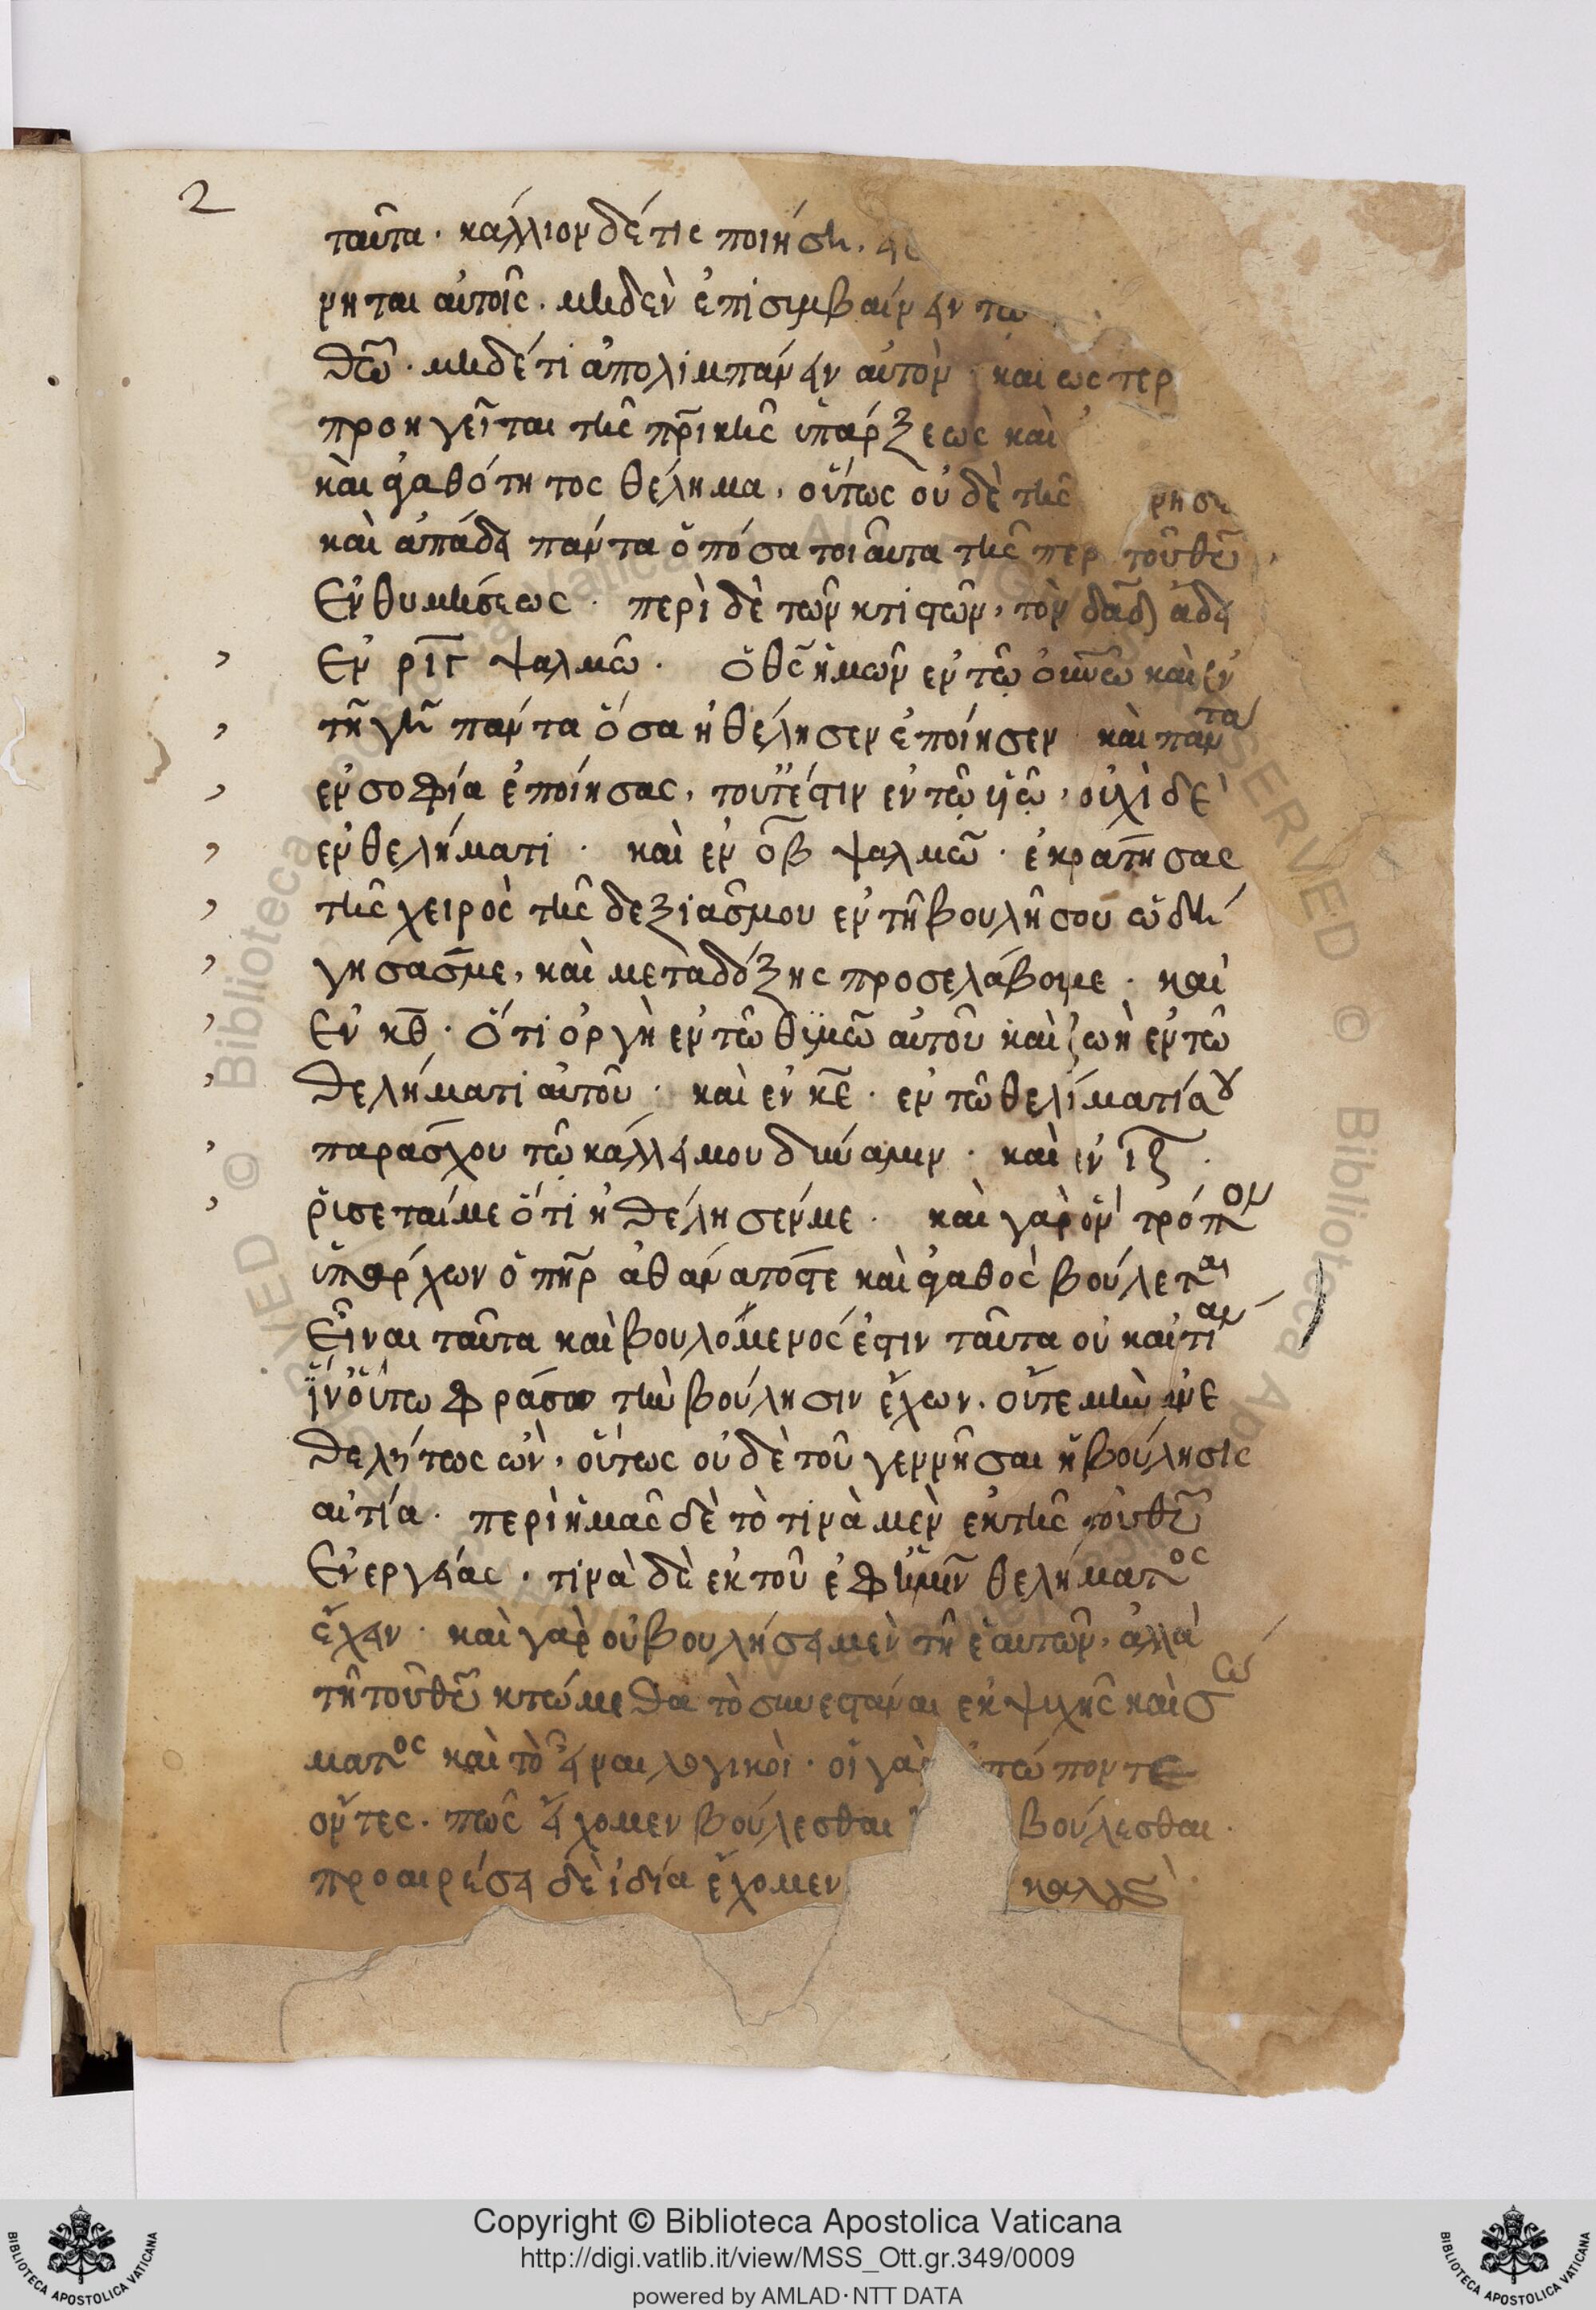 2
ταῦτα· κάλλιον δέ τις ποιήση,
νηται αὐτοῖς. μηδὲν ἐπισυμβαίνειν τῶ
θεῶ· μηδέ τι ἀπολιμπάνειν αὐτὸν· καὶ ὥσπερ
προηγεῖται τῆς πρικῆς ὑπάρξεως καὶ
καὶ ἀγαθότητος θέλημα, οὕτως οὐδὲ τῆς
καὶ ἀπάδει πάντα ὁπόσα τοιαῦτα τῆς περ τοῦ θυ
Ενθυμήσεως· περὶ δὲ τῶν κτιστῶν, τὸν δαδ ἄδει
Εν ριγ ψαλμῶ· ὁ θς ἡμῶν ἐν τῶ οὐνῶ καὶ ἐν
τῆ γῆ πάντα ὅσα ἠθέλησεν ἐποίησεν καὶ πάντα
ἐν σοφία ἐποίησας, τουτέστιν ἐν τῶ υἱῶ, οὐχὶ δὲ
ἐν θελήματι· καὶ ἐν οβ ψαλμῶ· ἐκράτησας
τῆς χειρὸς τῆς δεξιᾶς μου ἐν τῆ βουλῆ σου ὡδή
γησάς με, καὶ μετὰ δόξης προσελάβου με· καὶ
Εν κθ· ὅτι ὀργὴ ἐν τῶ θυμῶ αὐτοῦ καὶ ζωὴ ἐν τῶ
θελήματι αὐτοῦ· καὶ ἐν κε· ἐν τῶ θελίματί σου
παράσχου τῶ κάλλει μου δύναμιν· καὶ ἐν ιζ·
ῥύσεταί με ὅτι ἠθέλησέν με· καὶ γὰρ ὃν τρόπον
ὑπάρχων ὁ πηρ ἀθάνατός τε καὶ ἀγαθὸς βούλεται
Εἶναι ταῦτα καὶ βουλόμενός ἐστιν ταῦτα οὐκ αἰτίαν
τὴν βούλησιν ἔχων. οὔτε μὴν ἀνε
θελήτως ὢν, οὕτως οὐδὲ τοῦ γεννῆσαι ἡ βούλησις
αἰτία· περὶ ἡμᾶς δὲ τὸ τινὰ μὲν ἐκ τῆς τοῦ θυ
Ενεργείας· τινὰ δὲ ἐκ τοῦ ἐφ' ἡμῖν θελήματος
ἔχειν· καὶ γὰρ οὐ βουλήσει μὲν τῆ ἑαυτῶν, ἀλλὰ
τῆ τοῦ θυ κτώμεθα τὸ συνεστάναι ἐκ ψυχῆς καὶ σώ
ματος καὶ τὸ εἶναι λογικοὶ· οἱ γὰρ
ὄντες. πῶς εἴχομεν βούλεσθαι βούλεσθαι·
προαιρέσει δὲ ἰδία ἔχομεν
Copyright © Biblioteca Apostolica Vaticana
http://digi.vatlib.it/view/MSS_Ott.gr.349/0009
powered by AMLAD·NTT DATA
BIBLIOTECA APOSTOLICA VATICANA
BIBLIOTECA APOSTOLICA VATICANA